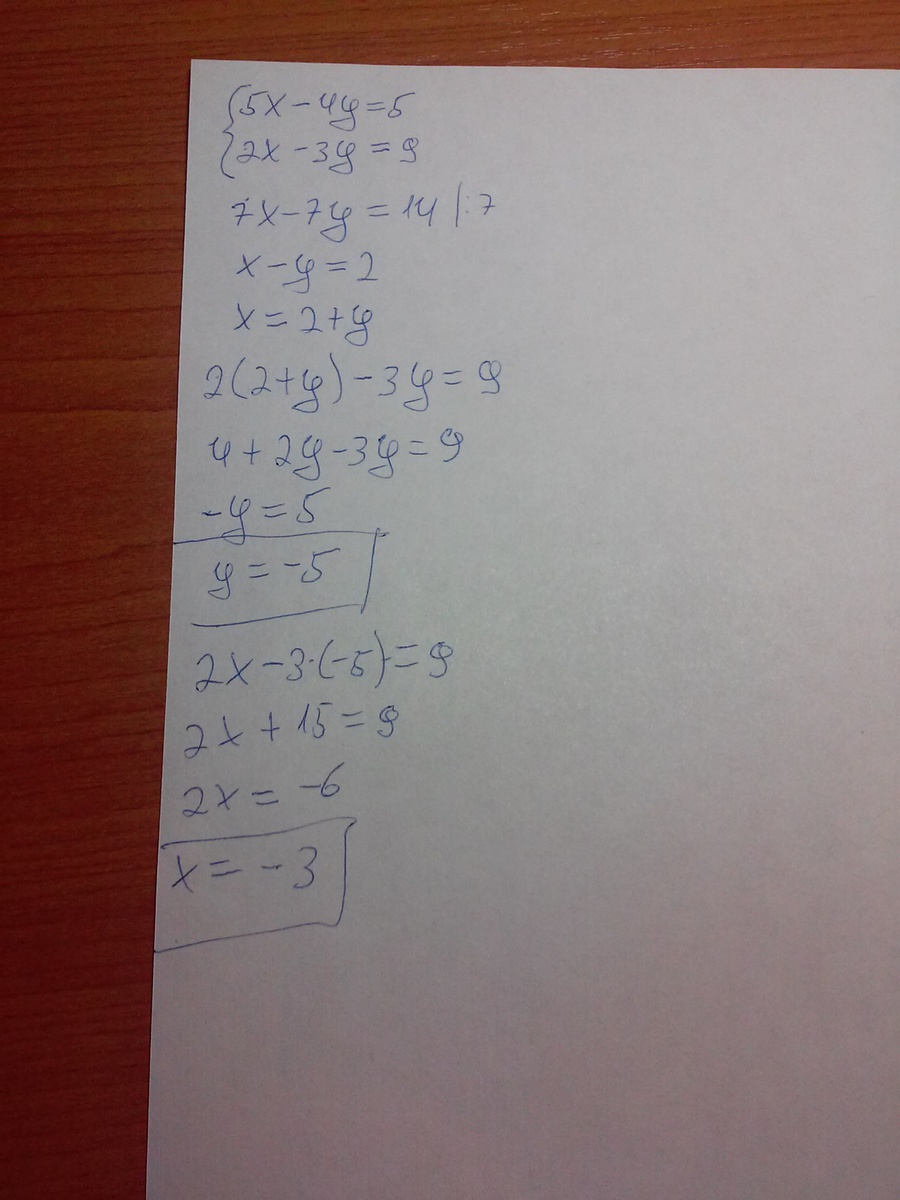 {5x-4y=5
{2x-3y=9
7x-7y=14 |:7
x-y=2
x=2+y
2(2+y)-3y=9
4+2y-3y=9
-y=5
y=-5
2x-3·(-5)=9
2x+15=9
2x=-6
x=-3